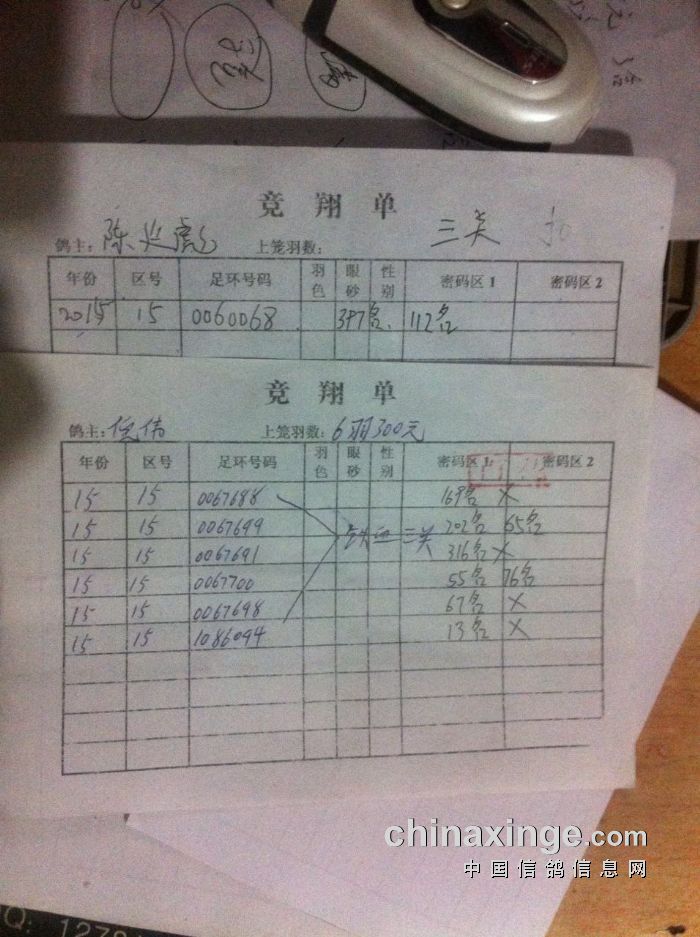 竞翔单
鸽主: 陈 彪 上笼羽数: 三关
年份 区号 足环号码 羽色 眼砂 性别 密码区1 密码区2
2015 15 0060068 397名 112名
竞翔单
鸽主: 倪伟 上笼羽数: 6羽300元
年份 区号 足环号码 羽色 眼砂 性别 密码区1 密码区2
15 15 0067688 169名 X
15 15 0067699 铁血三关 202名 65名
15 15 0067691 316名 X
15 15 0067700 55名 76名
15 15 0067698 67名 X
15 15 1086094 13名 X
chinaxinge.com
中国信鸽信息网
Q: 1279